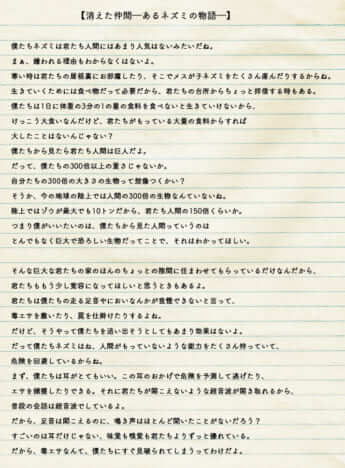 【消えた仲間―あるネズミの物語―】
僕たちネズミは君たち人間にはあまり人気はないみたいだね。
まぁ、嫌われる理由もわからなくはないよ。
寒い時は君たちの屋根裏にお邪魔したり、そこでメスが子ネズミをたくさん産んだりするからね。
生きていくためには食べ物だって必要だから、君たちの台所からちょっと拝借する時もある。
僕たちは1日に体重の3分の1の量の食料を食べないと生きていけないから、
けっこう大食いなんだけど、君たちがもっている大量の食料からすれば
大したことはないんじゃない?
僕たちから見たら君たち人間は巨人だよ。
だって、僕たちの300倍以上の重さじゃないか。
自分たちの300倍の大きさの生物って想像つくかい?
そうか、今の地球の陸上では人間の300倍の生物なんていないね。
陸上ではゾウが最大でも10トンだから、君たち人間の150倍くらいか。
つまり僕がいいたいのは、僕たちから見た人間っていうのは
とんでもなく巨大で恐ろしい生物だってことで、それはわかってほしい。
そんな巨大な君たちの家のほんのちょっとの隙間に住まわせてもらっているだけなんだから、
君たちももう少し寛容になってほしいと思うときもあるよ。
君たちは僕たちの走る足音やにおいなんかが我慢できないと言って、
毒エサを撒いたり、罠を仕掛けたりするよね。
だけど、そうやって僕たちを追い出そうとしてもあまり効果はないよ。
だって僕たちネズミはね、人間がもっていないような能力をたくさん持っていて、
危険を回避しているからね。
まず、僕たちは耳がとてもいい。この耳のおかげで危険を予測して逃げたり、
エサを捕獲したりできる。それに君たちが聞こえないような超音波が聞き取れるから、
普段の会話は超音波でしているよ。
だから、足音は聞こえるのに、鳴き声はほとんど聞いたことがないだろう?
すごいのは耳だけじゃない、味覚も嗅覚も君たちよりずっと優れている。
だから、毒エサなんて、僕たちにすぐ見破られてしまうってわけだよ。